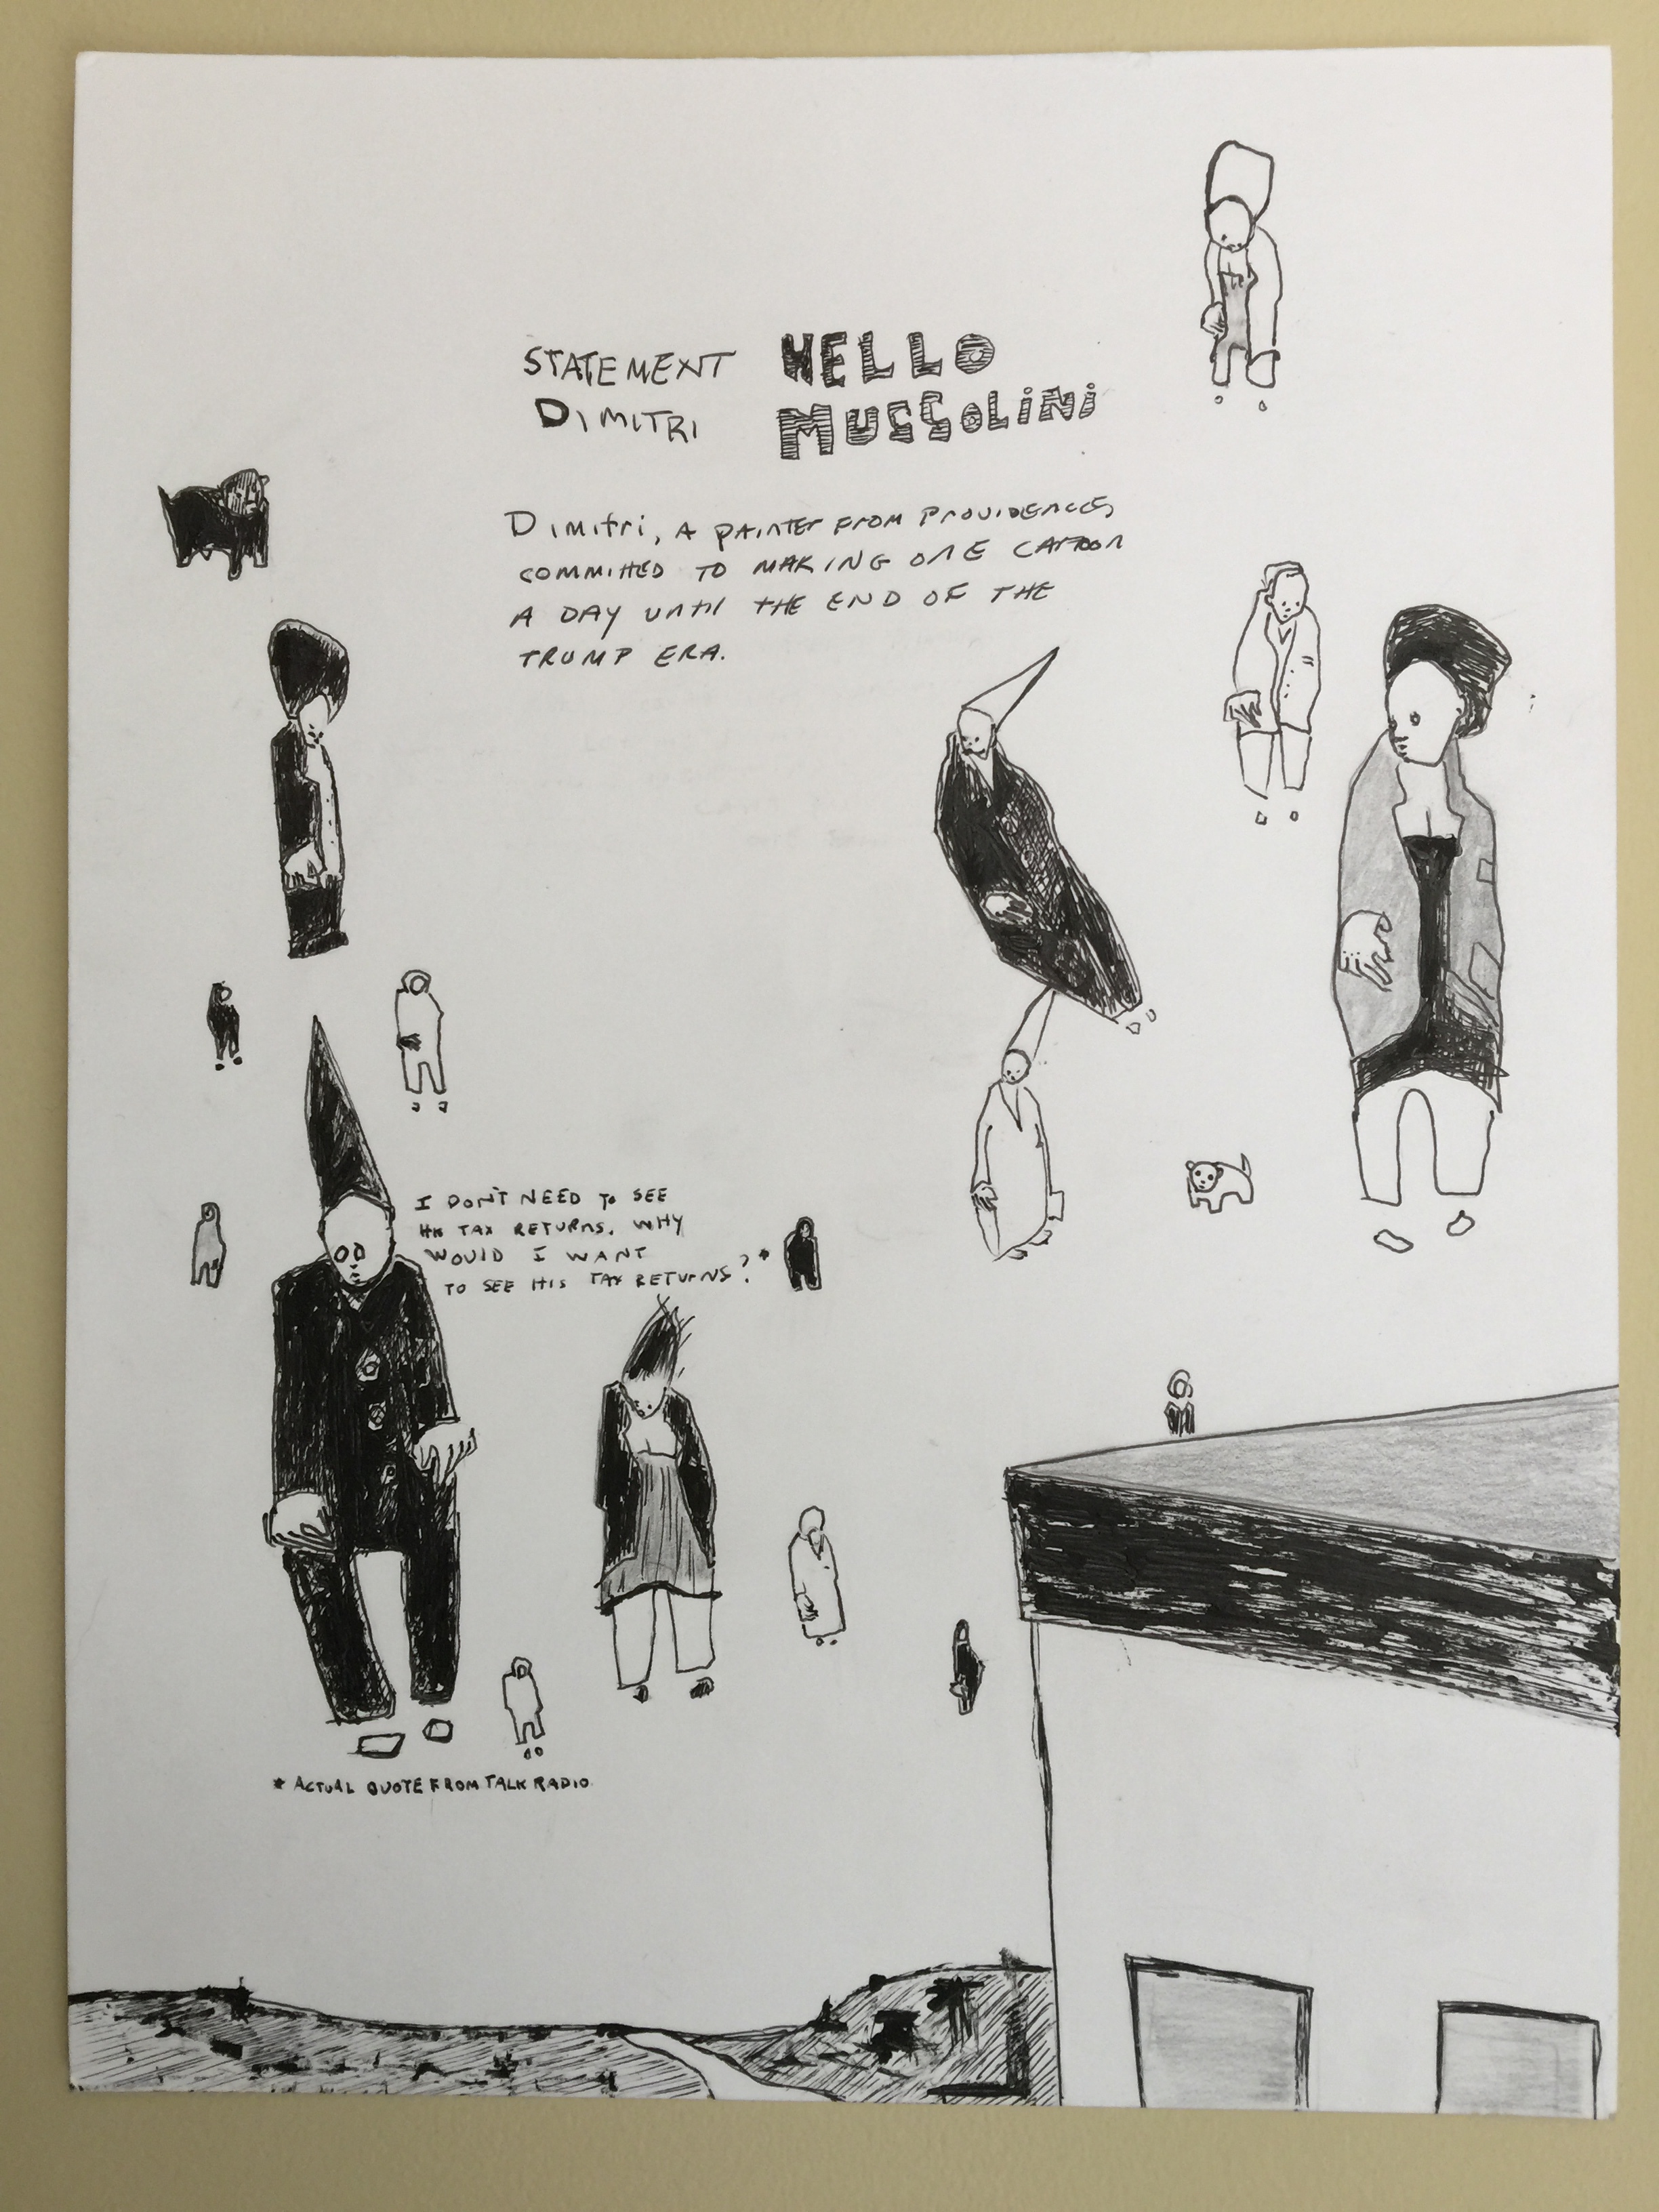 STATEMENT
DIMITRI
HELLO
MUSSOLINI
Dimitri, A PAINTER FROM PROVIDENCE,
COMMITTED TO MAKING ONE CARTOON
A DAY UNTIL THE END OF THE
TRUMP ERA.
I DON'T NEED TO SEE
HIS TAX RETURNS. WHY
WOULD I WANT
TO SEE HIS TAX RETURNS?*
* ACTUAL QUOTE FROM TALK RADIO